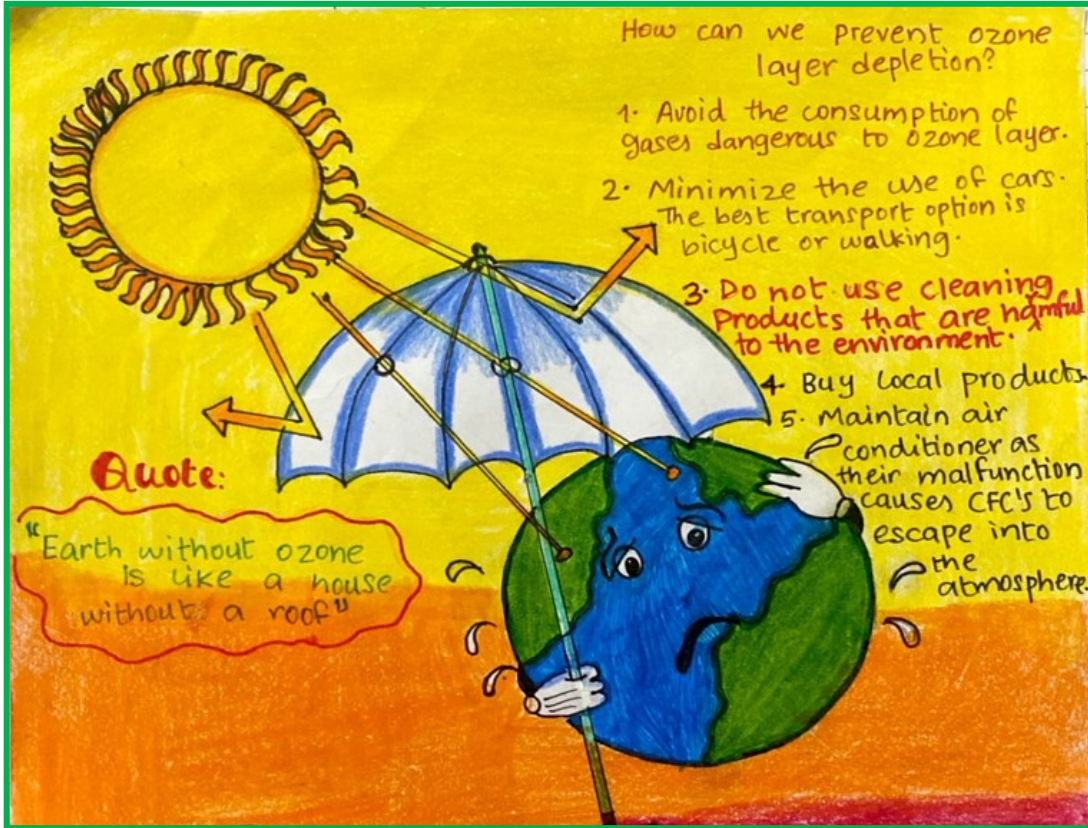 How can we prevent ozone
layer depletion?
1. Avoid the consumption of
gases dangerous to ozone layer.
2. Minimize the use of cars.
The best transport option is
bicycle or walking.
3. Do not use cleaning
Products that are harmful
to the environment.
4. Buy local products
5. Maintain air
conditioner as
their malfunction
causes CFC's to
escape into
the
atmosphere.
Quote:
"Earth without ozone
is like a house
without a roof"